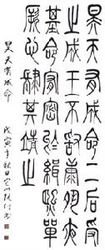 昊天有成命二后受
之成王不敢康夙夜
基命宥密於緝熙單
厥心肆其靖之
昊天有成命
戊寅年秋日